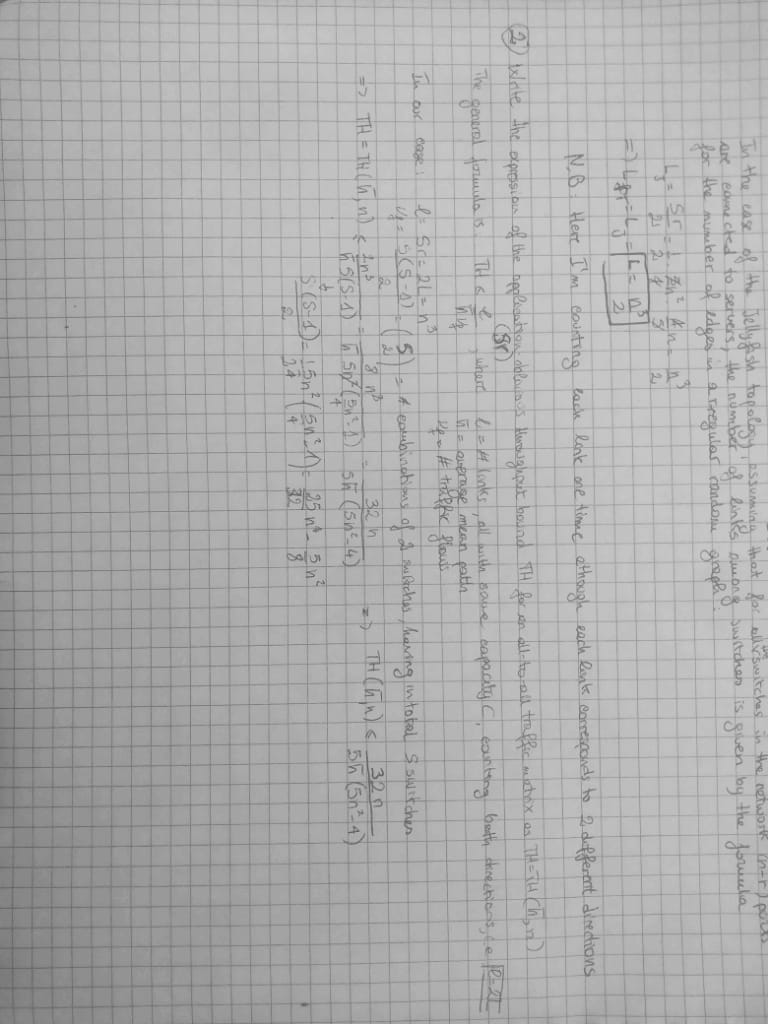 In the case of the Jellyfish topology, assuming that for all the switches in the network (n-r) ports
are connected to servers, the number of links among switches is given by the formula
for the number of edges in a r regular random graph:
L_J = Sr/2 = 1/2 5/4 n² 4/5 n = n³/2
=> L_FT = L_J = L = n³/2
N.B: Here I'm counting each link one time although each link corresponds to 2 different directions
2) Write the expression of the application-oblivious throughput bound TH for an all-to-all traffic matrix as TH=TH(h̄,n)
The general formula is TH ≤ ℓ/(h̄ν_f), where ℓ = # links, all with same capacity C, counting both directions, i.e. ℓ=2L
(Sr)
h̄ = average mean path
ν_f = # traffic flows
In our case: ℓ = Sr = 2L = n³
ν_f = S(S-1)/2 = (S 2) = # combinations of 2 switches, having in total S switches
=> TH = TH(h̄,n) ≤ 2n³/(h̄S(S-1)) = 8n³/(h̄ 5n²(5/4 n²-1)) = 32n/(5h̄(5n²-4)) => TH(h̄,n) ≤ 32n/(5h̄(5n²-4))
S(S-1)/2 = 1/2 5/4 n²(5/4 n²-1) = 25/32 n⁴ - 5/8 n²